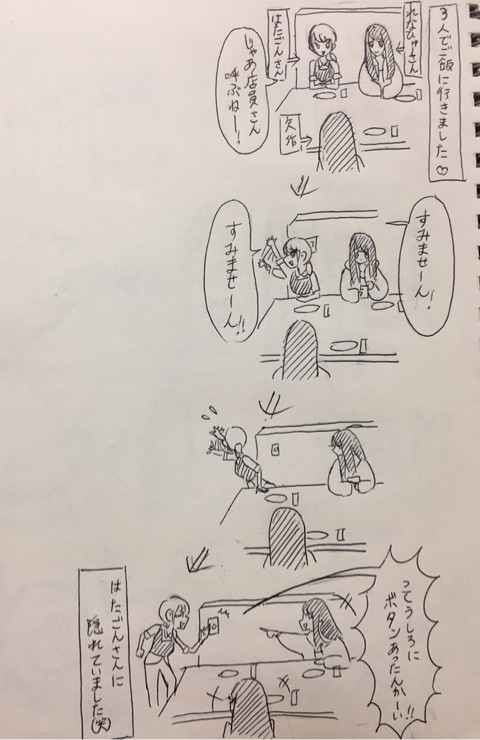 3人でご飯に行きました♡
れなぴゅーさん
はたごんさん
じゃあ店員さん
呼ぶねー!
すみませーん!
すみませーん!!
ってうしろに
ボタンあったんかーい!!
はたごんさんに
隠れていました(笑)